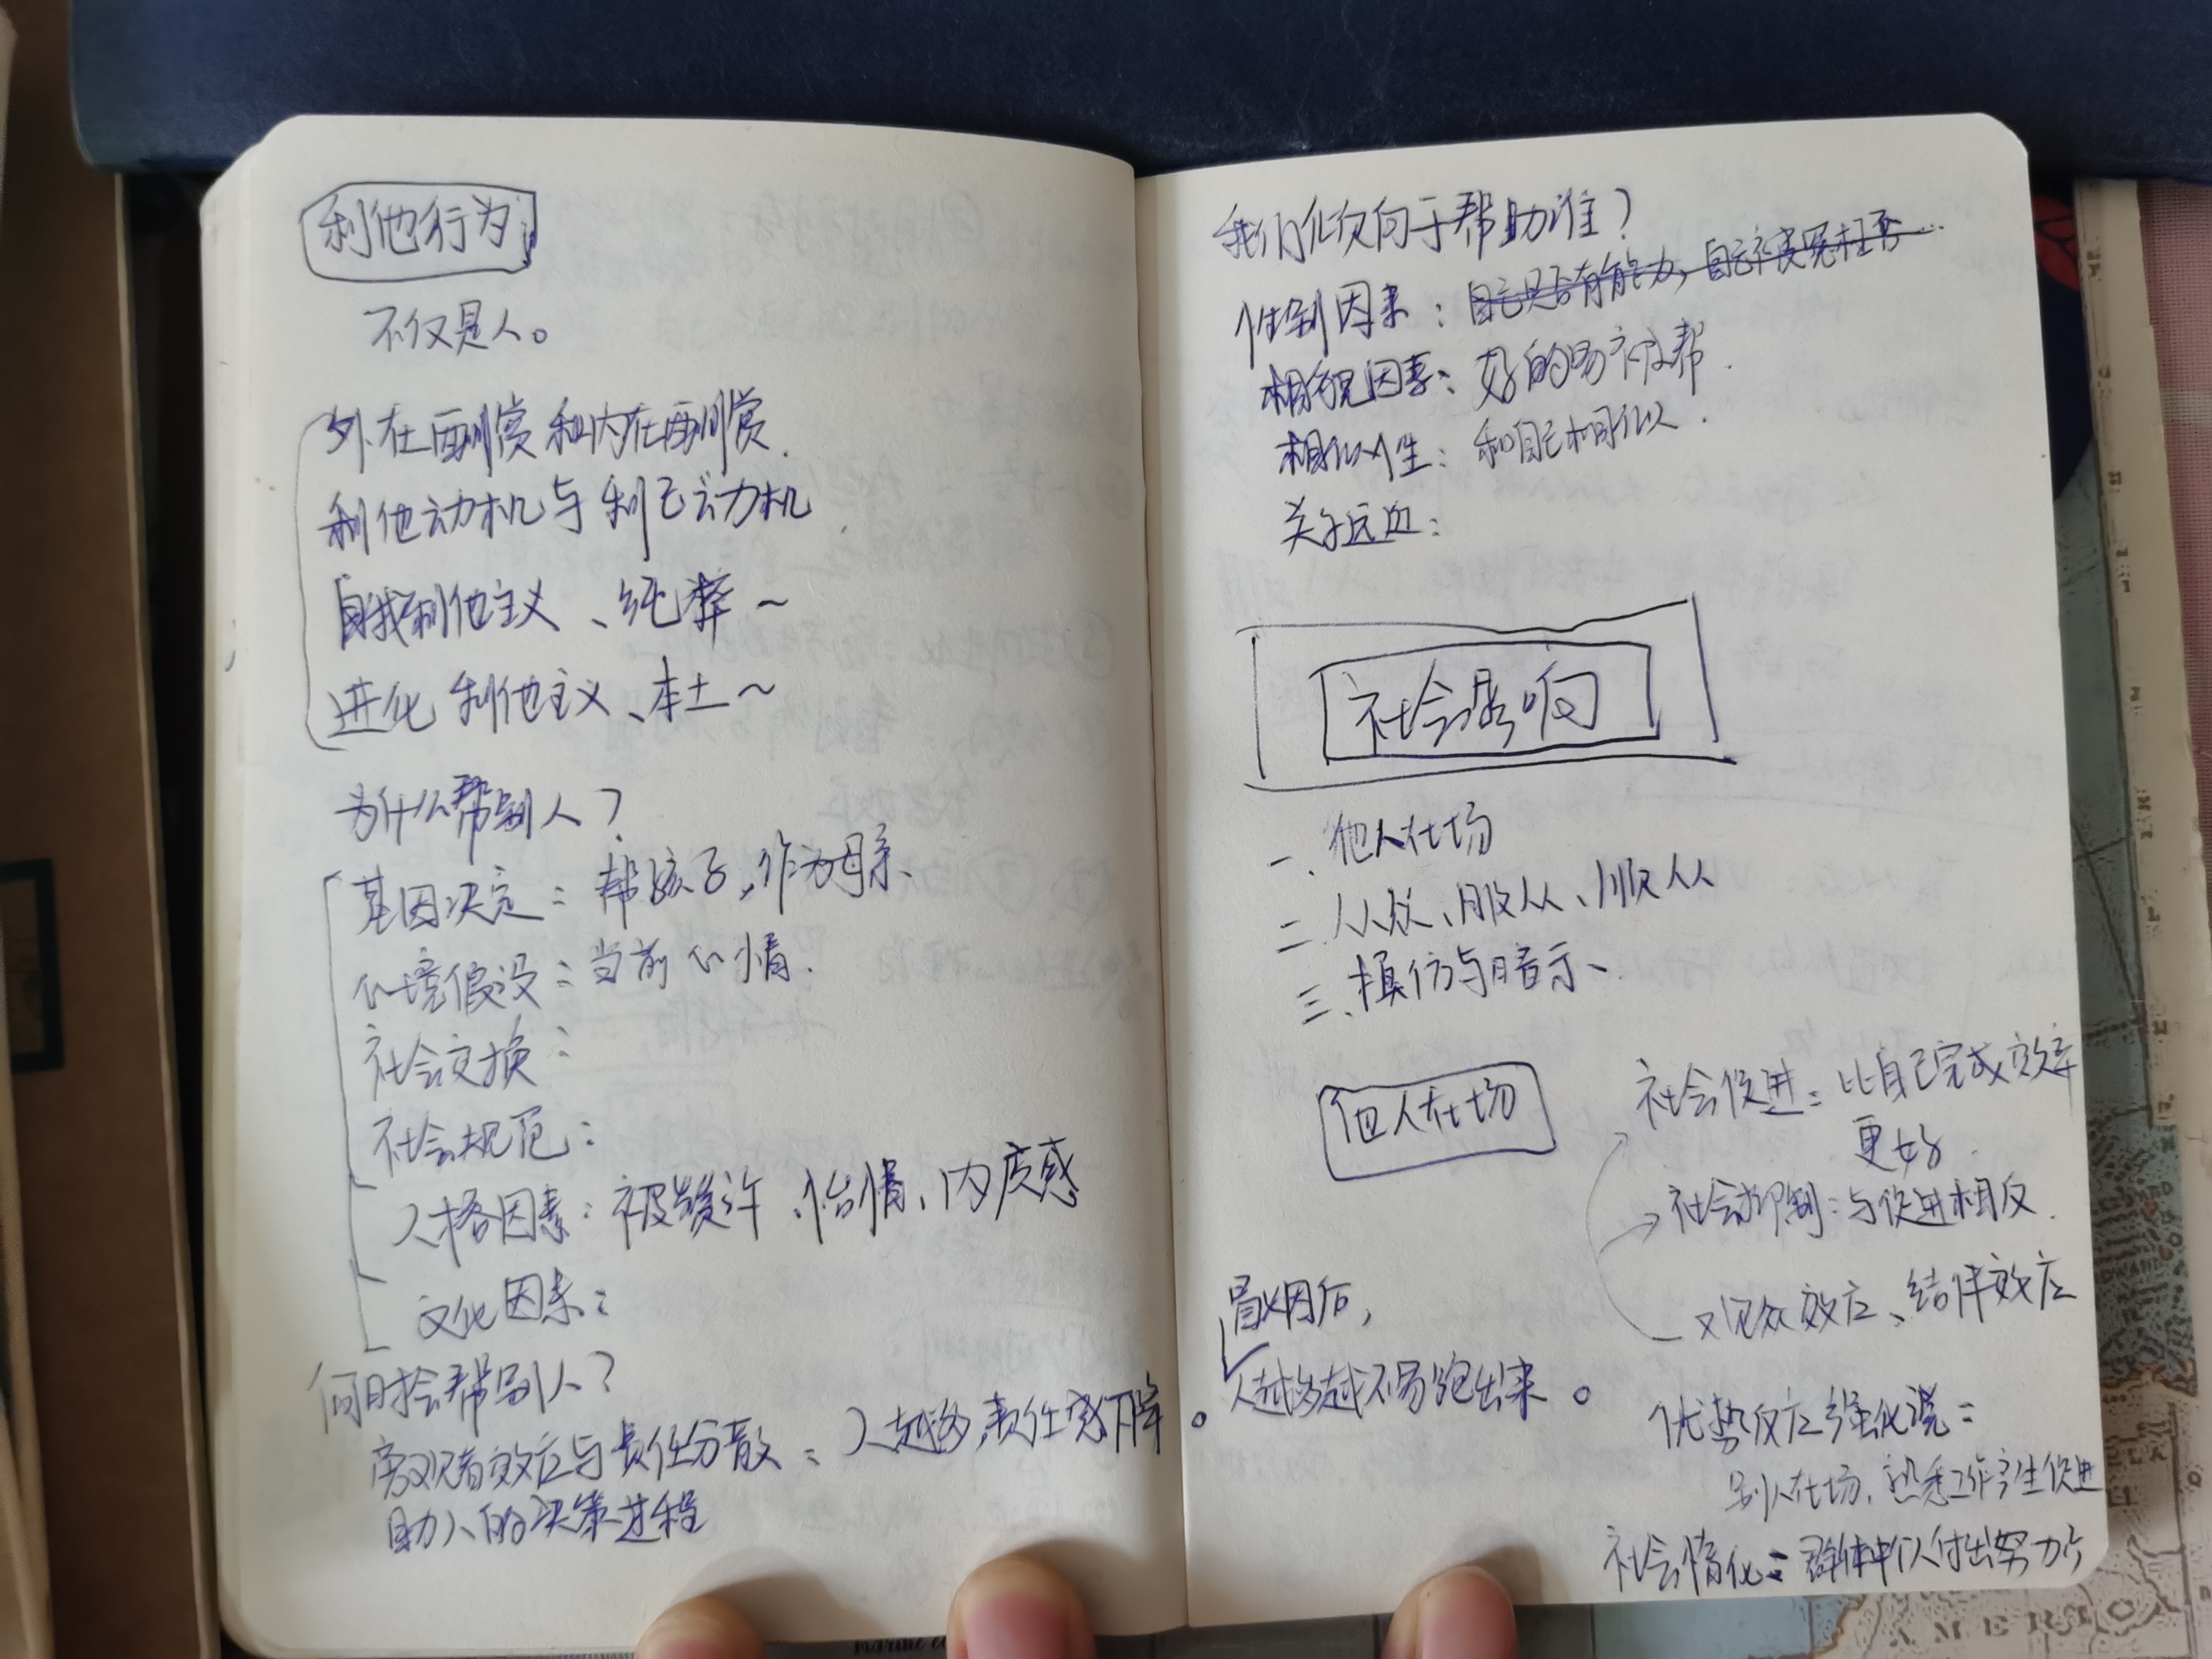 利他行为
不仅是人。
外在酬赏和内在酬赏.
利他动机与利己动机
自我利他主义、纯粹~
进化利他主义、本土~
为什么帮别人?
基因决定:帮孩子,作为母亲、
心境假设:当前心情.
社会交换:
社会规范:
人格因素:被赞许、怡情、内疚感
文化因素:
何时会帮别人?
旁观者效应与责任分散:人越多,责任感下降。
助人的决策过程
我们倾向于帮助谁?
性别因素:自己是否有能力,自己
相貌因素:好的易被帮.
相似性:和自己相似.
关系远近:
社会影响
一、他人在场
二、从众、服从、顺从
三、模仿与暗示、
他人在场
社会促进:比自己完成效率
更好.
社会抑制:与促进相反.
观众效应、结伴效应
冒烟后,
人越多越不易跑出来。
优势反应强化说:
别人在场,熟悉工作产生促进
社会惰化:群体中个人付出努力少